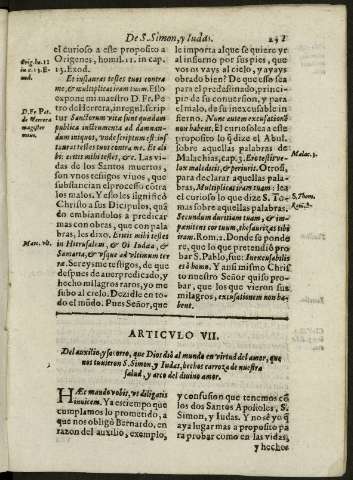 De S. Simon, y Iudas. 
el curioso a este proposito a
Origenes, homil. 11. in cap.
13. Exod.
Et instauras testes tuos contra
me, & multiplicas iram tuam. Esto
expone mi maestro D. Fr. Pe
tro de Herrera, in regul. scrip
tur Sanctorum vitæ sunt quædam
publica instrumenta ad damnan-
dum iniquos, vnde scriptum est: ins
tauras testes tuos contra me. Et ali
bi: eritis mihi testes, &c. Las vi-
das de los Santos muertos,
son vnos testigos viuos, que
substancian el processo cõtra
los malos. Y eso les significó
Christo a sus Dicipulos, quã
do embiandolos a predicar
mas con obras, que con pala
bras, les dixo. Eritis mihi testes
in Hierusalem, & in Iudæa, &
Samaria, & vsque ad vltimum ter
ræ. Sereysme testigos, de que
despues de auer predicado, y
hecho milagros raros, yo me
subo al cielo. Dezidle en to-
do el mũdo. Pues Señor, que
Orig. ho. 11
in c. 13. E-
xod.
D. Fr. Pet.
de Herrera
magister
meus.
le importa al que se quiere yr
al infierno por sus pies, que
vos os vays al cielo, y ayays
obrado bien? De que esso sea
para el predestinado, princi-
pio de su conuersion, y para
el malo, de su inexcusable in
fierno. Nunc autem excusationẽ
non habent. El curioso lea a este
proposito lo q̃ dize el Abul.
sobre aquellas palabras de
Malachias, cap. 3. Ero testis ve-
lox maledicis, & periuris. Otrosi,
para declarar aquellas pala-
bras. Multiplicas iram tuam: lea
el curioso lo que dize S. To-
mas sobre aquellas palabras.
Secundum duritiam tuam, & im-
pœnitens cor tuum, thesaurizas tibi
iram. Rom. 2. Donde se pon de
re, que lo que pretendió pro
bar S. Pablo, fue: Inexcusabilis
es ô homo. Y ansi mismo Chri
sto nuestro Señor quiso pro-
bar, que los que vieron sus
milagros, excusationem non ha-
bent.
Malac. 3.
S. Thom.
ARTICVLO VII.
Del auxilio, y socorro, que Dios dió al mundo en virtud del amor, que
nos tuuieron S. Simon, y Iudas, hechos carroza de nuestra
salud, y arco del diuino amor.
HÆc mando vobis, vt diligatis
inuicem. Ya es tiempo que
cumplamos lo prometido, a
que nos obligó Bernardo, en
razon del auxilio, exemplo,
y confusion que tenemos cõ
los dos Santos Apostoles, S.
Simon, y Iudas. Y no sé q̃
aya lugar mas a proposito pa
ra probar como en las vidas,
y hechos